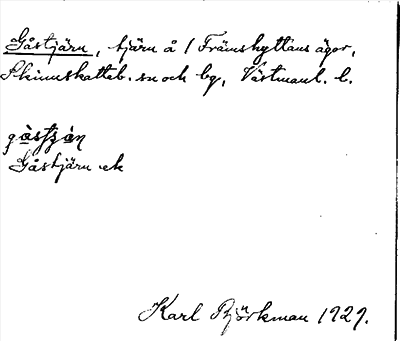 Gåstjärn, tjärn å 1 Främshyttans ägor,
Skinnskatteb. sn och bg, Västmanl. l.
gåstjɑ̀n
Gåstjärn ek
Karl Björkman 1929.